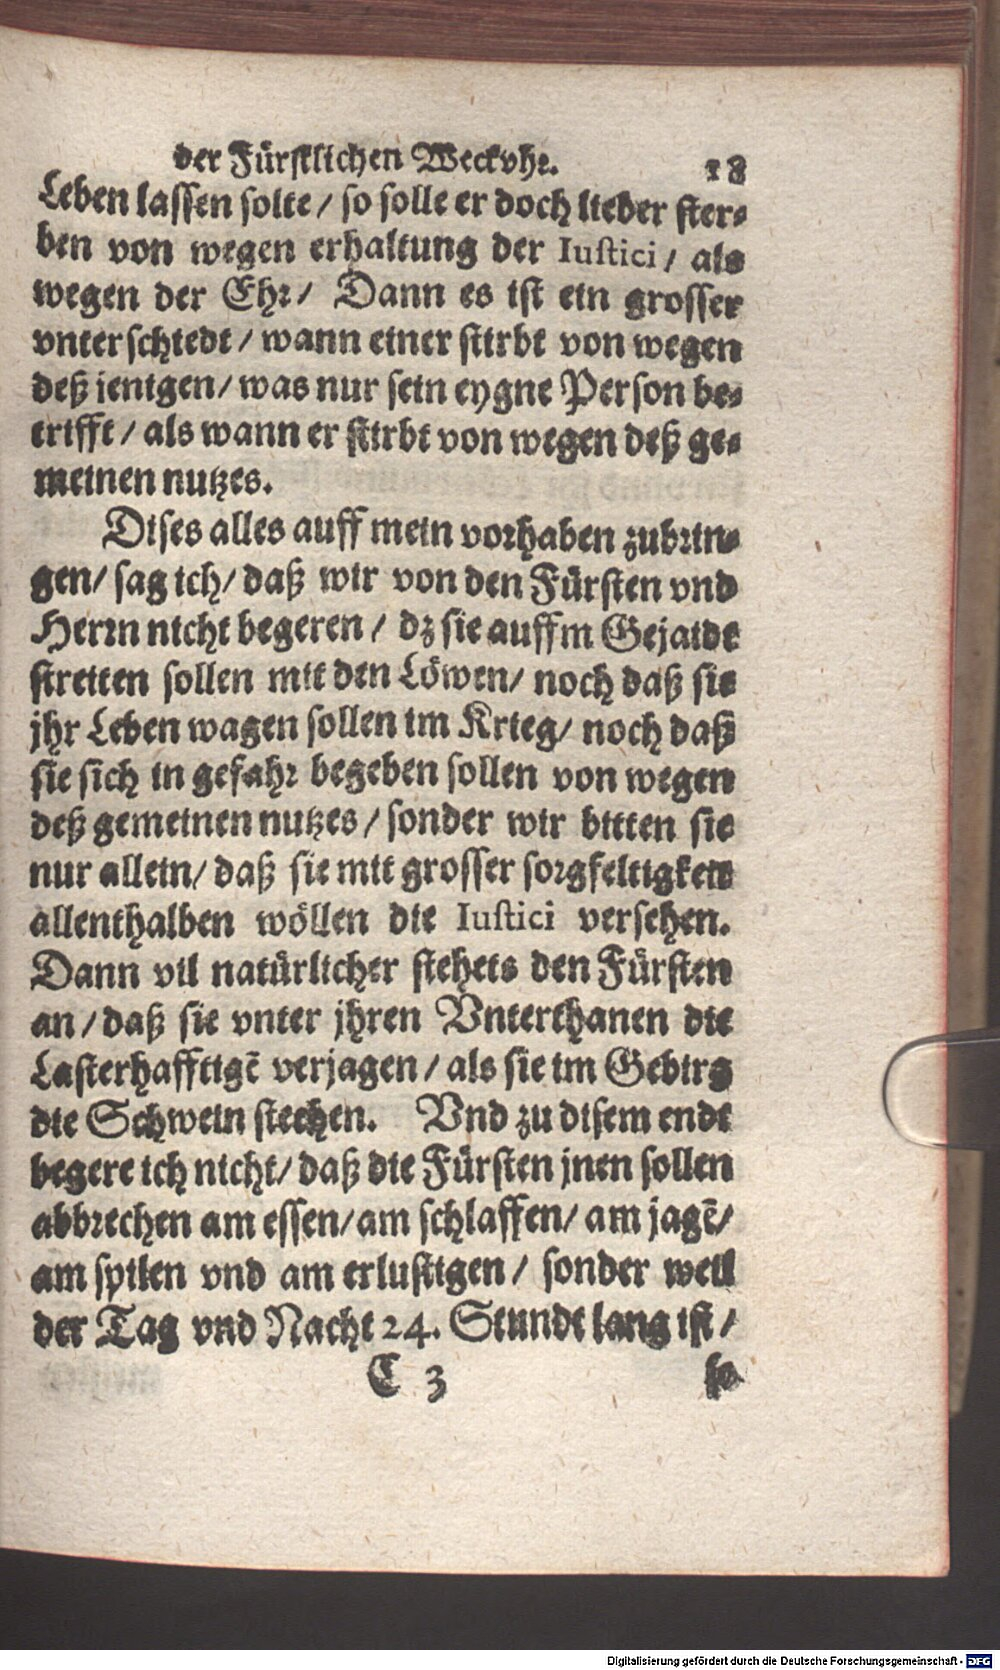 der Fürstlichen Weckvhr. 18
Leben lassen solte / so solle er doch lieber ster-
ben von wegen erhaltung der Iustici / als
wegen der Ehr / Dann es ist ein grosser
vnterschiedt / wann einer stirbt von wegen
deß jenigen / was nur sein eygne Person be-
trifft / als wann er stirbt von wegen deß ge-
meinen nutzes.
Dises alles auff mein vorhaben zubrin-
gen / sag ich / daß wir von den Fürsten vnd
Herrn nicht begeren / dz sie auffm Gejaidt
streiten sollen mit den Löwen / noch daß sie
jhr Leben wagen sollen im Krieg / noch daß
sie sich in gefahr begeben sollen von wegen
deß gemeinen nutzes / sonder wir bitten sie
nur allein / daß sie mit grosser sorgfeltigkeit
allenthalben wöllen die Iustici versehen.
Dann vil natürlicher stehets den Fürsten
an / daß sie vnter jhren Vnterthanen die
Lasterhafftigē verjagen / als sie im Gebirg
die Schwein stechen. Vnd zu disem endt
begere ich nicht / daß die Fürsten jnen sollen
abbrechen am essen / am schlaffen / am jagē /
am spilen vnd am erlustigen / sonder weil
der Tag vnd Nacht 24. Stundt lang ist /
C 3 so
Digitalisierung gefördert durch die Deutsche Forschungsgemeinschaft - DFG